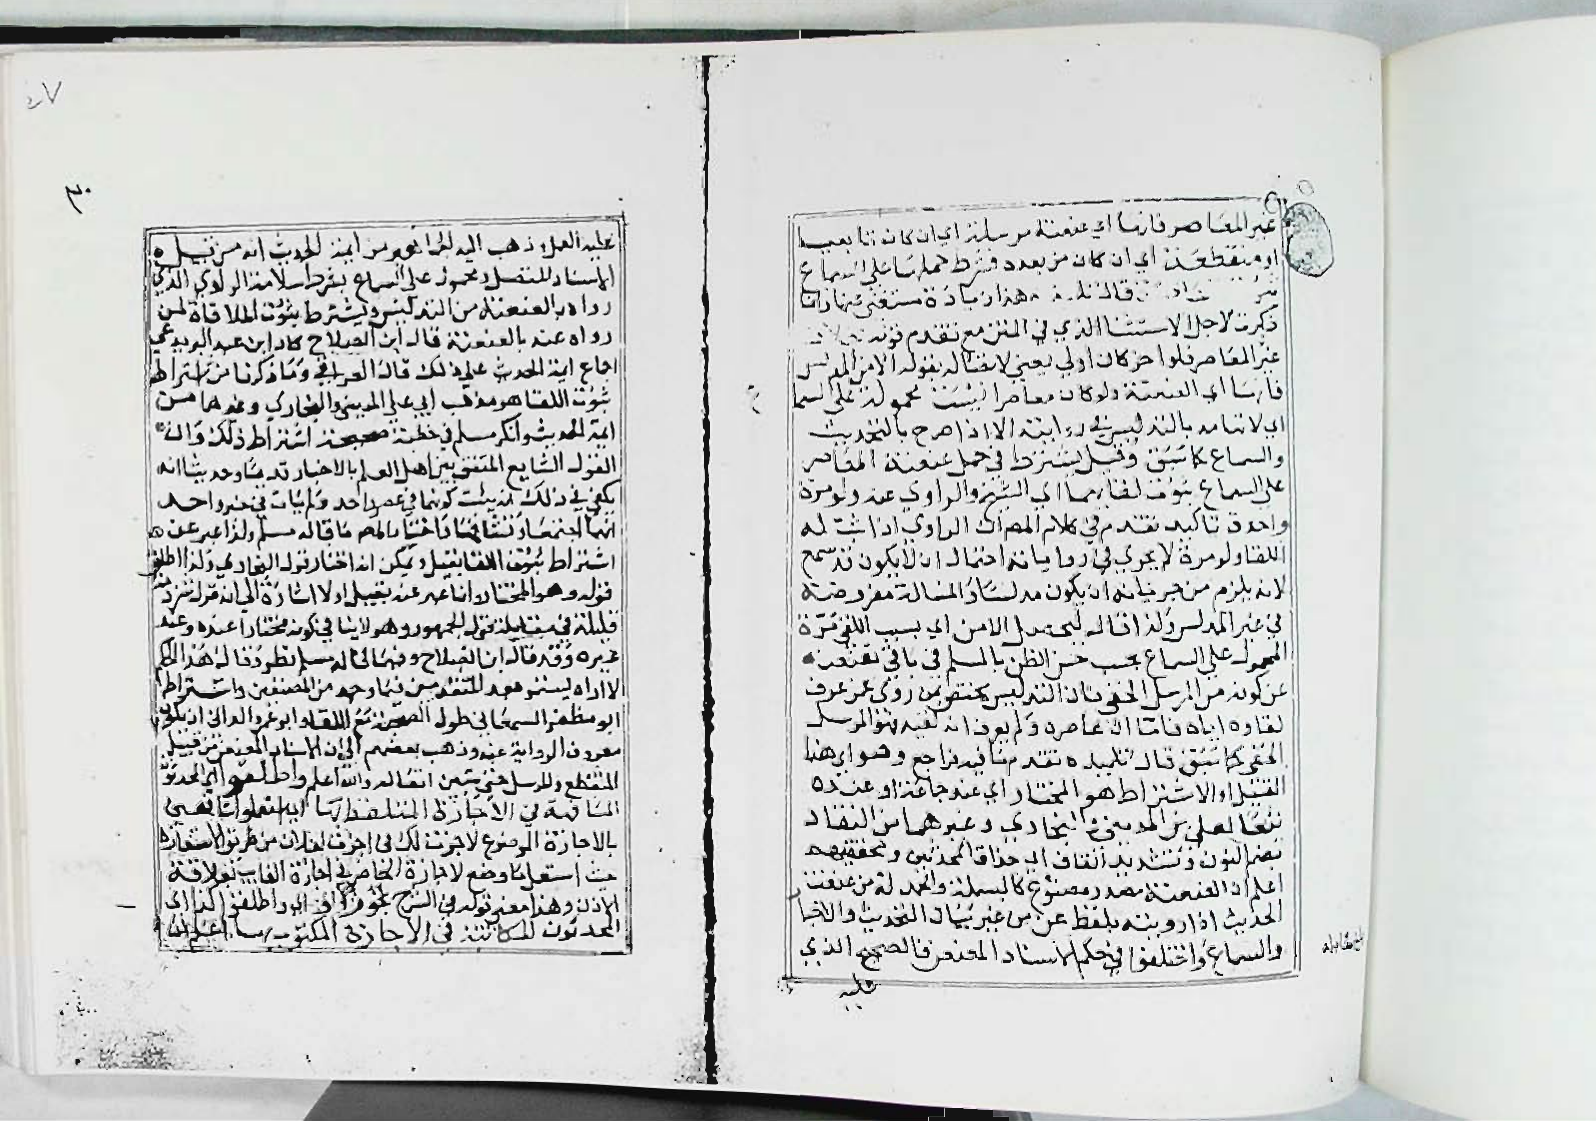 غير المعاصر فانها اي عنعنته مرسلة اي ان كان تابعيا
او منقطعة اي ان كان من بعده فشرط حملها على السماع
قال تلميذه هذا زيادة مستغنى عنها وانما
ذكرت لاجل الاستثنا الذي في المتن مع تقدم قوله
غير المعاصر فلو اخر كان اولى يعني لاتصاله بقوله الا من المدلس
فانها اي العنعنة ولو كان معاصرا ليست محمولة على السما
اي لاتهامه بالتدليس في روايته الا اذا صرح بالتحديث
والسماع كما سبق وقيل يشترط في حمل عنعنة المعاصر
على السماع ثبوت لقايهما اي الشيخ والراوي عنه ولو مرة
واحدة تاكيد تقدم في كلام المص ان الراوي اذا ثبت له
اللقا ولو مرة لا يجري في رواياته احتمال ان لا يكون قد سمع
لانه يلزم من جريانه ان يكون مدلسا والمسالة مفروضة
في غير المدلس ولذا قال ليحصل الامن اي بسبب اللقي مرة
المحمول على السماع بحسب حسن الظن بالمسلم في باقي العنعنة
عن كونه من المرسل الخفي فان التدليس يختص بمن روى عمن عرف
لقاوه اياه فاما ان عاصره ولم يعرف انه لقيه فهو المرسل
الخفي كما سبق قال تلميذه تقدم ما فيه فراجع وهو اي هذا
القيل او الاشتراط هو المختار اي عند جماعة او عنده
تبعا لعلي بن المديني والبخاري وغيرهما من النقاد
بضم النون وتشديد القاف اي حذاق المحدثين ومحققيهم
اعلم ان العنعنة مصدر مصنوع كالبسملة والحمدلة من عنعنت
الحديث اذا رويته بلفظ عن من غير بيان التحديث والاخبا
والسماع واختلفوا في حكم الاسناد المعنعن فالصحيح الذي
عليه
بلغ مقابلة
٣٠
عليه العمل وذهب اليه الجماهير من ايمة الحديث انه من قبيل
الاسناد المتصل ومحمول على السماع بشرط سلامة الراوي الذي
رواه بالعنعنة من التدليس ويشترط ثبوت الملاقاة لمن
رواه عنه بالعنعنة قال ابن الصلاح كاد ابن عبد البر يدعي
اجماع ايمة الحديث على ذلك قال العراقي وما ذكرنا من اشتراط
ثبوت اللقا هو مذهب ابي علي المديني والبخاري وغيرهما من
ايمة الحديث وانكر مسلم في خطبة صحيحه اشتراط ذلك وان
القول الشايع المتفق بين اهل العلم بالاخبار قديما وحديثا انه
يكفي في ذلك ان يثبت كونهما في عصر واحد ولم يات في خبر واحد
انهما اجتمعا وتشافها فاختيار المص ما قاله مسلم ولذا عبر عن
اشتراط ثبوت اللقا بقيل ويمكن انه اختار قول البخاري ولذا اطلق
قوله وهو المختار وانما عبر عنه بقيل اولا اشارة الى انه قول شرذمة
قليلة في مقابلة قول الجمهور وهو لا ينافي كونه مختارا عنده وعند
غيره وقد قال ابن الصلاح وفيما قاله مسلم نظر وقال هذا الحكم
لا اراه يستمر بعد المتقدمين فيما وجد من المصنفين واشترط
ابو مظفر السمعاني طول الصحبة مع اللقا وابو عمرو الداني ان يكون
معروفا بالرواية عنه وذهب بعضهم الى ان الاسناد المعنعن من قبيل
المنقطع والمرسل حتى يتبين اتصاله والله اعلم واطلقوا اي المحدثون
المشافهة في الاجازة المتلفظ بها اي استعملوا
بالاجازة الموضوع لاجزت لك في اجزت لفلان من طريق الاستعارة
حيث استعمل ما وضع لاجازة الحاضر في اجازة الغايب بعلاقة
الاذن وهذا معنى قوله في الشرح تجوزا اي واطلقوا كذا اي
المحدثون المكاتبة في الاجازة المكتوب بها اعلم ان